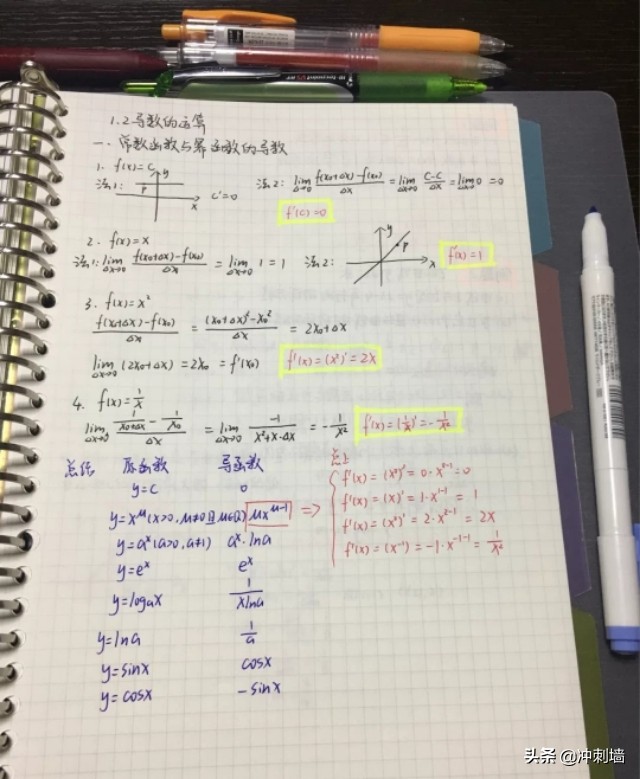 1.2导数的运算
一. 常数函数与幂函数的导数
1. f(x)=C
法1: P y x C'=0 法2: lim Δx→0 f(x₀+Δx)-f(x₀)/Δx = lim Δx→0 C-C/Δx = lim Δx→0 0 = 0
f'(C)=0
2. f(x)=x
法1: lim Δx→0 f(x₀+Δx)-f(x₀)/Δx = lim Δx→0 1 = 1 法2: y P x f'(x)=1
3. f(x)=x²
f(x₀+Δx)-f(x₀)/Δx = (x₀+Δx)²-x₀²/Δx = 2x₀+Δx
lim Δx→0 (2x₀+Δx)=2x₀=f'(x₀) f'(x)=(x²)'=2x
4. f(x)=1/x
lim Δx→0 (1/(x₀+Δx) - 1/x₀)/Δx = lim Δx→0 -1/(x²+x·Δx) = -1/x² f'(x)=(1/x)'=-1/x²
总结 原函数 导函数
y=C 0
y=xᵘ(x>0, μ≠0且μ∈Q) μxᵘ⁻¹ ⇒
y=aˣ(a>0, a≠1) aˣ·lna
y=eˣ eˣ
y=logₐx 1/xlna
y=lna 1/a
y=sinx cosx
y=cosx -sinx
f'(x)=(x⁰)'=0·x⁰⁻¹=0
f'(x)=(x)'=1·x¹⁻¹=1
f'(x)=(x²)'=2·x²⁻¹=2x
f'(x)=(x⁻¹)=-1·x⁻¹⁻¹=1/x²
头条 @冲刺墙